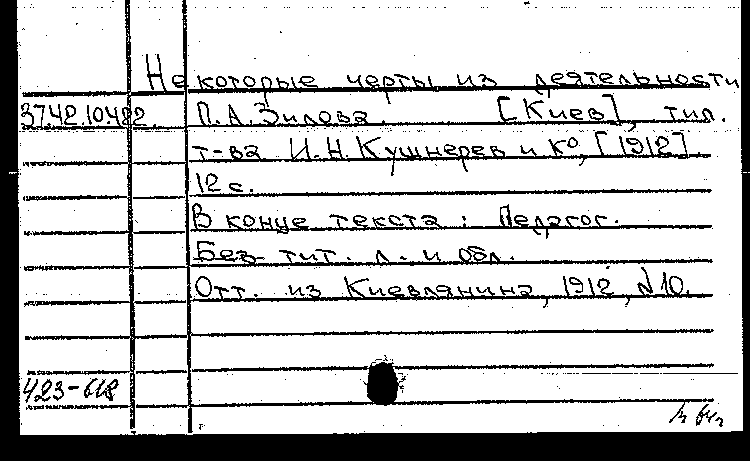 Некоторые черты из деятельности
3742.10482. П.А.Зилова. [Киев], тип.
т-ва И.Н.Кушнерев и К⁰, [1912].
12 с.
В конце текста: Педагог.
Без тит. л. и обл.
Отт. из Киевлянина, 1912, №10.
423-618